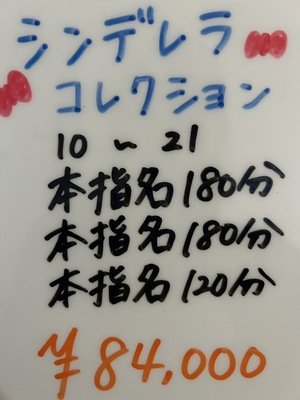 シンデレラ
コレクション
10～21
本指名180分
本指名180分
本指名120分
¥84,000